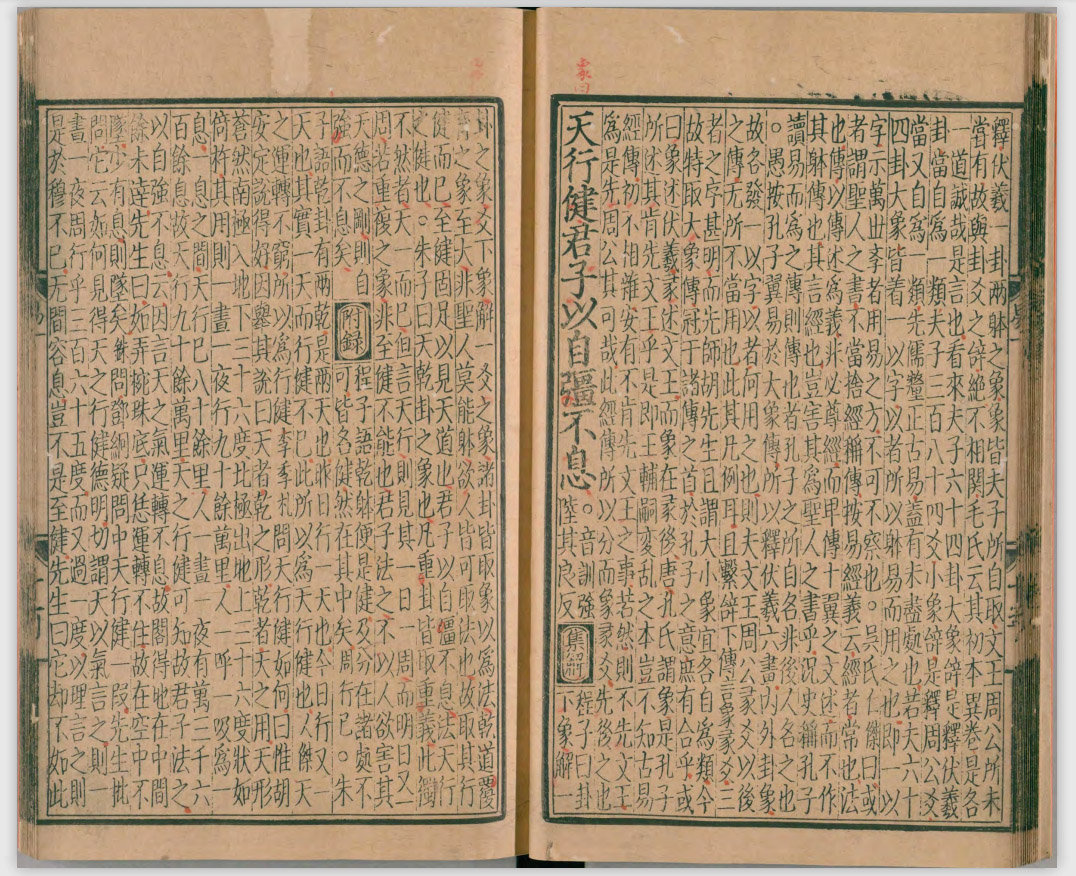 釋伏羲一卦兩躰之象象皆夫子所自取文王周公所未
嘗有故與卦爻之辝絶不相關毛氏云其初本異卷是各
一道誠哉是言也看來夫子六十四卦大象辝是釋伏羲
卦當自為一類夫子三百八十四爻小象辝是釋周公爻
當又自為一類先儒釐正古易盖有未盡䖏也若夫六十
四卦大象皆着一以字以者所以躰易而用之也即一以
字示萬世斈者用易之方不可不察也○吳氏仁傑曰或
者謂聖人之書不當捨經稱傳按易經義云經者常也法
也傳以傳述為義非必尊經而卑傳十翼之文述而不作
其躰傳也其言經也豈害其為聖人之書乎況史稱孔子
讀易而為之傳則傳也者孔子之所自名非後人名之也
○愚按孔子翼易於大象傳所以釋伏羲六畫内外卦象
故各發一以字以者何用之也則夫文王周公彖爻以後
之傳无所不當用也此其凡例耳且繫辝下傳言彖爻三
者之字甚明而先師胡先生且謂大小象宜各自為類今
故特取大象傳冠于諸傳之首於孔子之意庶有合乎或
曰象述伏羲彖述文王而象在彖後唐孔氏謂象是孔子
所述其肯先文王乎是即王輔嗣変乱之本豈不知古易
經傳初不相雜安有不肯先文王之事若然則不先文王
為是先周公其可哉此經傳所以分而彖象爻先後之也
天行健君子以自彊不息○音訓強陸其良反集䟽程子曰卦下象解一
卦之象爻下象解一爻之象諸卦皆取象以為法乾道覆
育之象至大非聖人莫能躰欲人皆可取法也故取其行
健而已至健固足以見天道也君子以自彊不息法天行
之健也○朱子曰天乾卦之象也凡重卦皆取重義此獨
不然者天一而已但言天行則見其一日一周而明日又一
周若重複之象非至健不能也君子法之不以人欲害其
天德之剛則自
強而不息矣
附録
程子語乾躰便是健及分在諸䖏不
可皆各健然在其中矣周行已○朱
子語乾卦有兩乾是兩天也昨日行一天也今日行又一
天也其實一天而行健不已此所以為天行健也人傑天
之運轉不窮所以為行健李季札問天行健如何曰惟胡
安定說得好因舉其說曰天者乾之形乾者天之用天形
蒼然南極入地下三十六度北極出地上三十六度狀如
倚杵其用則一晝一夜行九十餘萬里人一呼一吸為一
息一息之間天行已八十餘里人一晝一夜有萬三千六
百餘息故天行九十餘萬里天之行健可知故君子法之
以自強不息云因言天之氣運轉不息故閣得地在中間
餘未達先生曰如弄椀珠底只恁運轉不住故在空中不
墜少有息則墜矣銖問部綱疑問中天行健一段先生批
問它云如何見得天之行健德明切謂天以氣言之則一
晝一夜周行乎三百六十五度而又過一度以理言之則
是於穆不已无間容息豈不是至健先生曰它却不如此